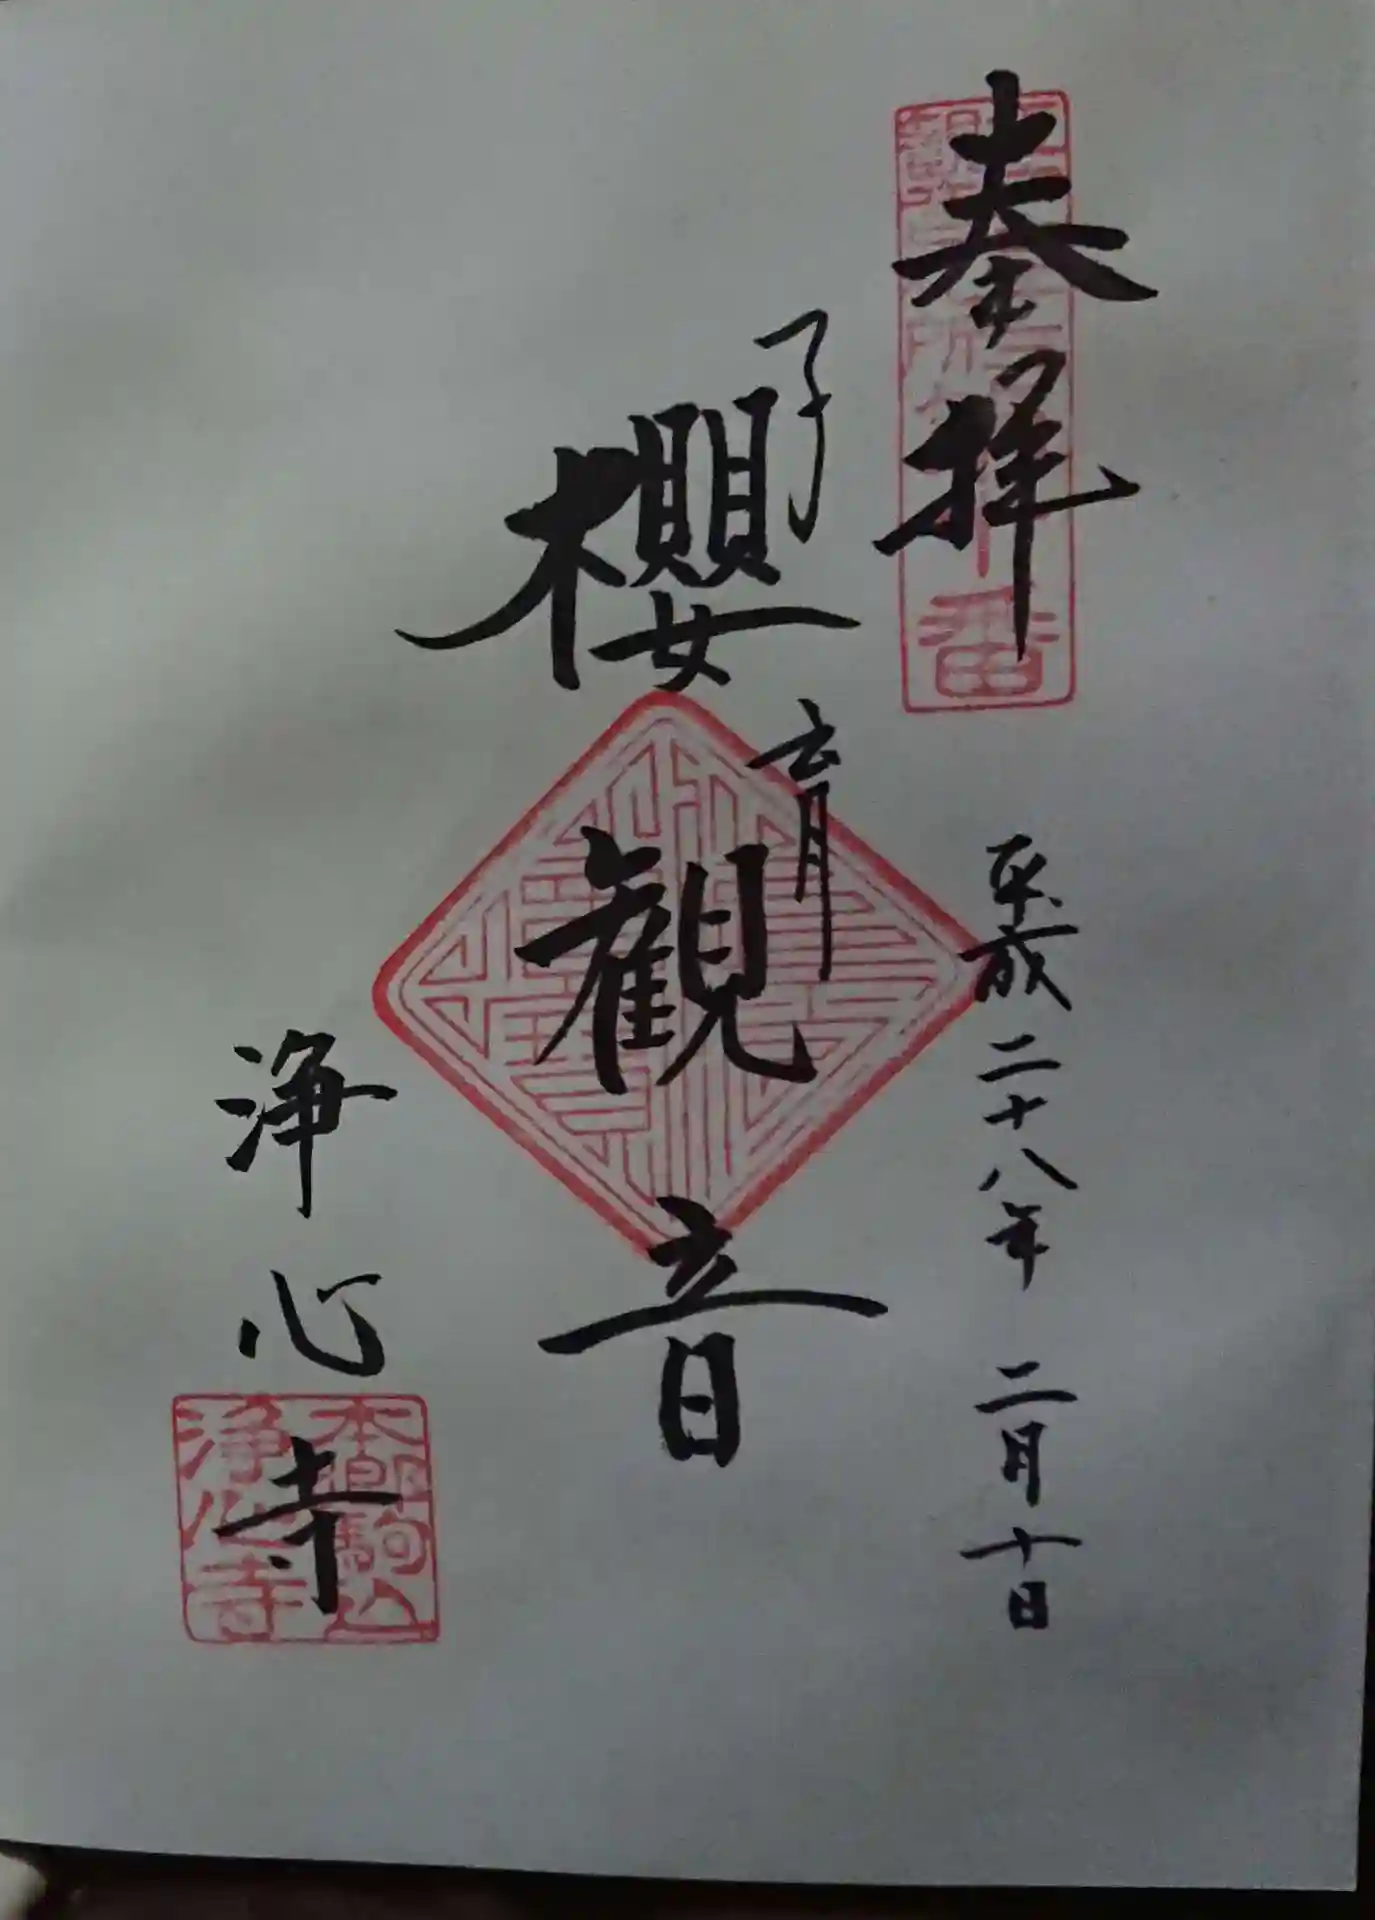 奉拝
平成二十八年 二月十日
子育
櫻観音
浄心寺
本駒込
浄心寺